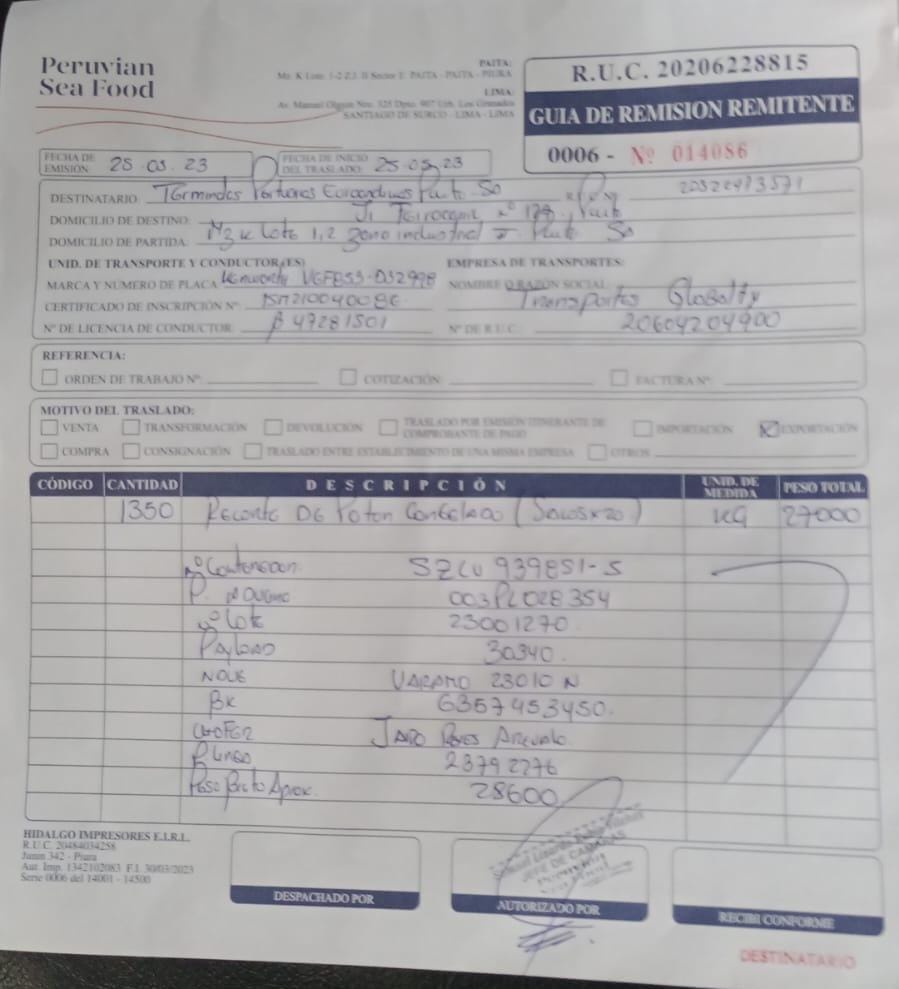 Peruvian
Sea Food
PAITA:
Mz. K Lote. 1-2 Z.I. II Sector I: PAITA - PAITA - PIURA
LIMA:
Av. Manuel Olguin Nro. 325 Dpto. 907 Urb. Los Granados
SANTIAGO DE SURCO - LIMA - LIMA
R.U.C. 20206228815
GUIA DE REMISION REMITENTE
0006 - Nº 014086
FECHA DE EMISIÓN 25 05 23
FECHA DE INICIO DEL TRASLADO: 25.05.23
DESTINATARIO
DOMICILIO DE DESTINO: Nº 178
DOMICILIO DE PARTIDA: Mz K Lote 1,2 zona industrial
UNID. DE TRANSPORTE Y CONDUCTOR(ES)
EMPRESA DE TRANSPORTES:
MARCA Y NÚMERO DE PLACA Kenworth
NOMBRE O RAZÓN SOCIAL: Transportes
CERTIFICADO DE INSCRIPCIÓN Nº:
Nº DE LICENCIA DE CONDUCTOR: B 47281501
Nº DE R.U.C.: 20604204900
REFERENCIA:
ORDEN DE TRABAJO Nº
COTIZACIÓN:
FACTURA Nº
MOTIVO DEL TRASLADO:
VENTA TRANSFORMACIÓN DEVOLUCIÓN TRASLADO POR EMISIÓN ITINERANTE DE COMPROBANTE DE PAGO IMPORTACIÓN EXPORTACIÓN
COMPRA CONSIGNACIÓN TRASLADO ENTRE ESTABLECIMIENTO DE UNA MISMA EMPRESA OTROS
CÓDIGO CANTIDAD DESCRIPCIÓN UNID. DE MEDIDA PESO TOTAL
1350 Recorte DE Poton Congelado KG 27000
Nº Contenedor SZLU 939851-5
P. 003PL028354
Nº Lote 23001270
Payload 30340.
NAVE VARAMO 23010 N
BK 6357453450.
Chofer Reyes Arevalo
23792276
Peso Bruto Aprox. 28600
HIDALGO IMPRESORES E.I.R.L.
R.U.C. 20484034258
Junin 342 - Piura
Aut. Imp. 1342102083 F.I. 30/03/2023
Serie 0006 del 14001 - 14500
JEFE DE CAMARAS
DESPACHADO POR
AUTORIZADO POR
RECIBI CONFORME
DESTINATARIO